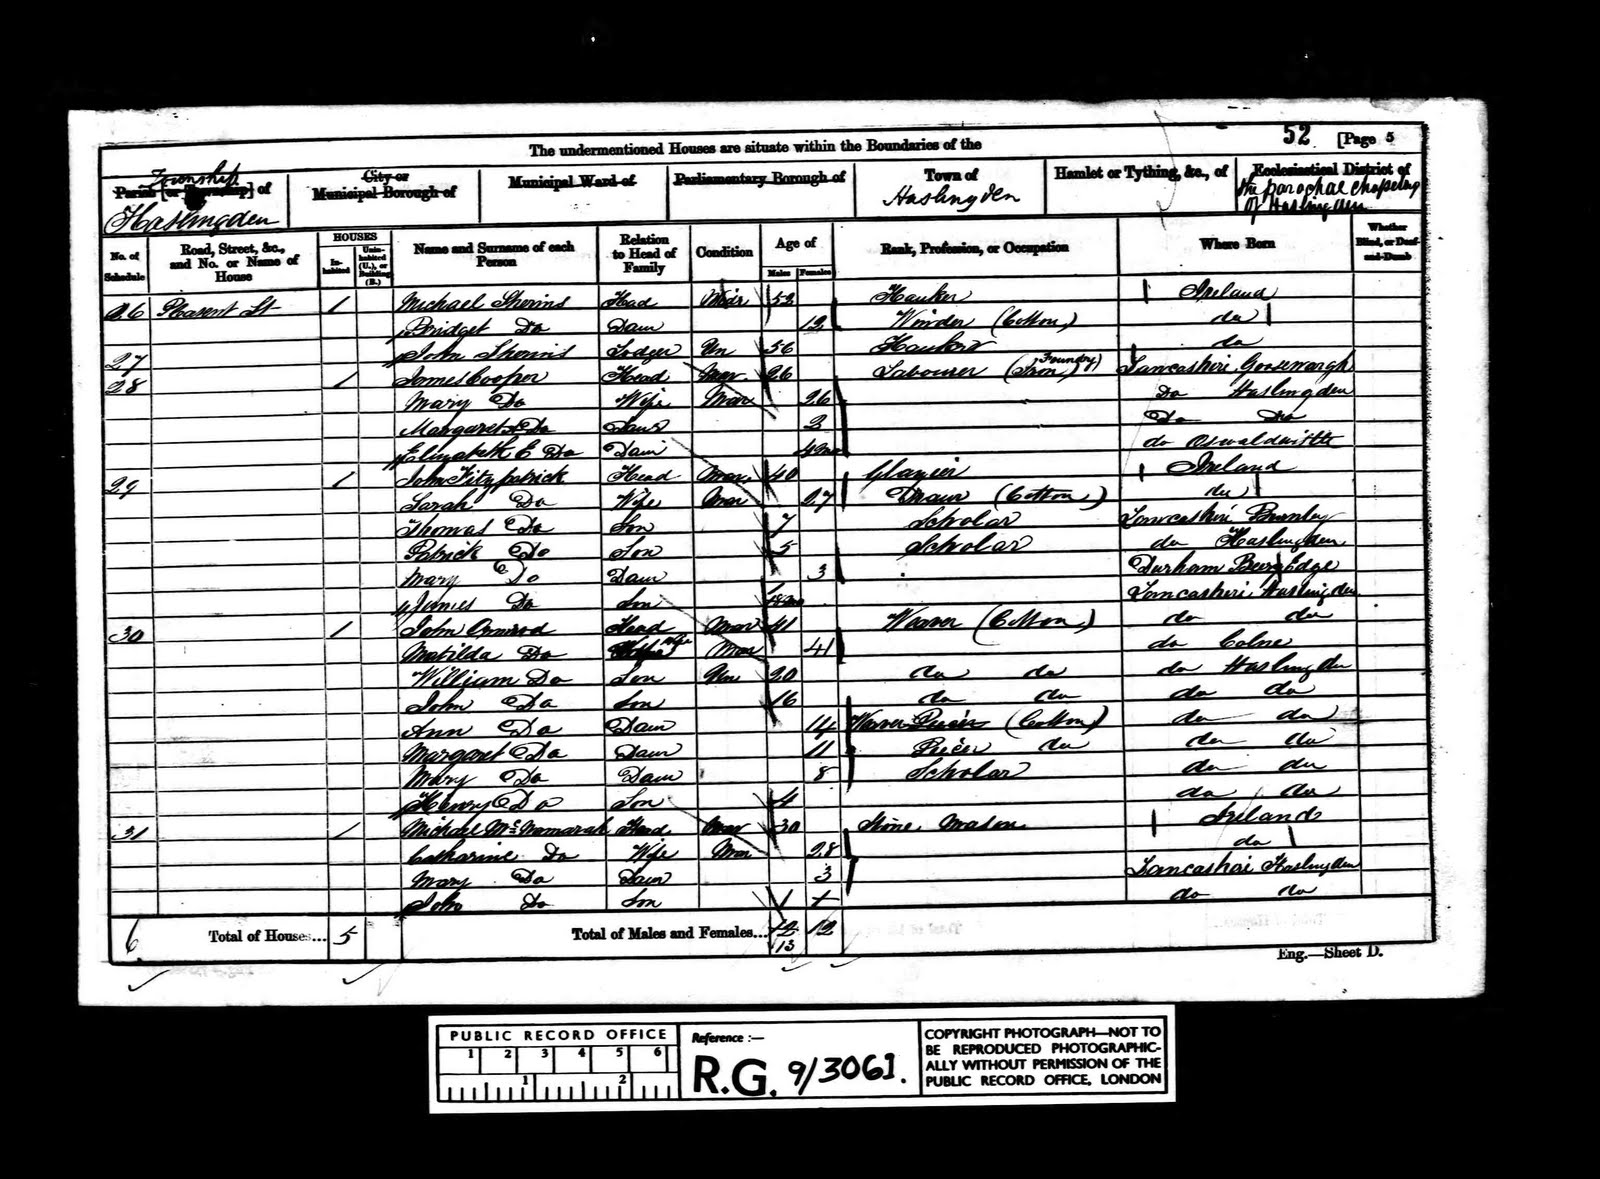 52 [Page 5
The undermentioned Houses are situate within the Boundaries of the
Township
Parish [or Township] of
City or
Municipal Borough of
Municipal Ward of
Parliamentary Borough of
Town of
Hamlet or Tything, &c., of
Ecclesiastical District of
Haslingden
Haslingden
the parochal chapelry
of Haslingden
No. of Schedule
Road, Street, &c., and No. or Name of House
HOUSES
Inhabited
Uninhabited (U.), or Building (B.)
Name and Surname of each Person
Relation to Head of Family
Condition
Age of
Males Females
Rank, Profession, or Occupation
Where Born
Whether Blind, or Deaf-and-Dumb
26 Plasent St 1 Michael Head Widr 52 Hauker Ireland
Bridget Do Daur 12 Winder (Cotton) do
27 John Lodger Un 56 Hauker do
28 1 James Cooper Head Mar. 26 Labourer (Iron Foundry) Lancashire
Mary Do Wife Mar 26 Do Haslingden
Margaret Do Daur 2 Do Do
Elizabeth E Do Daur 4 mo do
29 1 John Fitzpatrick Head Mar. 40 Glazier Ireland
Sarah Do Wife Mar 27 (Cotton) do
Thomas Do Son 7 Scholar Lancashire Burnley
Patrick Do Son 5 Scholar do Haslingden
Mary Do Daur 3 Durham
James Do Son Lancashire Haslingden
30 1 John Ormrod Head Mar 41 Weaver (Cotton) do do
Matilda Do Wife Mar 41 do Colne
William Do Son Un 20 do do do Haslingden
John Do Son 16 do do do do
Ann Do Daur 14 Weaver Piecer (Cotton) do do
Margaret Do Daur 11 Piecer do do do
Mary Do Daur 8 Scholar do do
Henry Do Son 4 do do
31 1 Michael McNamarah Head Mar 30 Stone Mason Ireland
Catharine Do Wife Mar 28 do
Mary Do Daur 3 Lancashire Haslingden
John Do Son 1 do do
6 Total of Houses... 5 Total of Males and Females... 12 12
13
Eng.—Sheet D.
PUBLIC RECORD OFFICE
1 2 3 4 5 6
1 2
Reference :—
R.G. 9/3061.
COPYRIGHT PHOTOGRAPH—NOT TO
BE REPRODUCED PHOTOGRAPHIC-
ALLY WITHOUT PERMISSION OF THE
PUBLIC RECORD OFFICE, LONDON